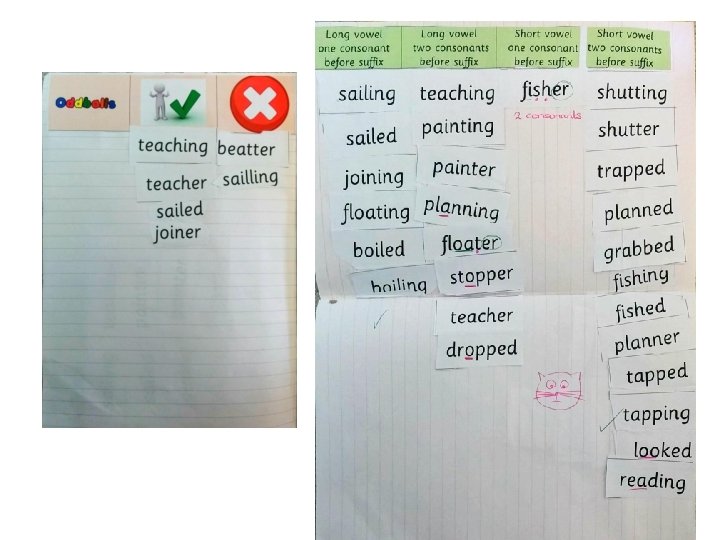 Oddballs
teaching
teacher
sailed
joiner
beatter
sailling
Long vowel
one consonant
before suffix
sailing
sailed
joining
floating
boiled
boiling
Long vowel
two consonants
before suffix
teaching
painting
painter
planning
floater
stopper
teacher
dropped
Short vowel
one consonant
before suffix
fisher
2 consonants
Short vowel
two consonants
before suffix
shutting
shutter
trapped
planned
grabbed
fishing
fished
planner
tapped
tapping
looked
reading